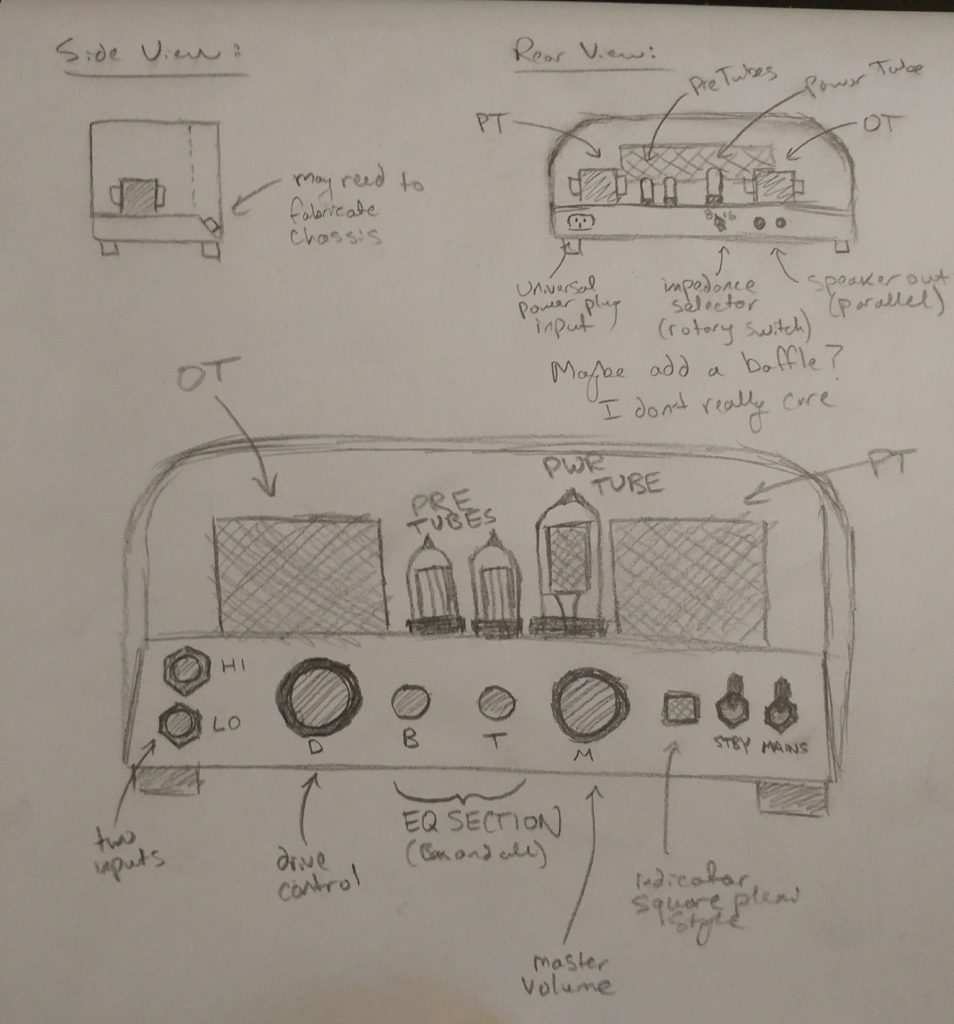 Side View:
may need to
fabricate
chassis
Rear View:
PreTubes
Power Tube
PT
OT
8
16
universal
power plug
input
impedance
selector
(rotary switch)
speaker out
(parallel)
Maybe add a baffle?
I don't really care
OT
PRE
TUBES
PWR
TUBE
PT
HI
LO
D
B
T
M
STBY
MAINS
two
inputs
drive
control
EQ SECTION
master
volume
indicator
square plexi
style